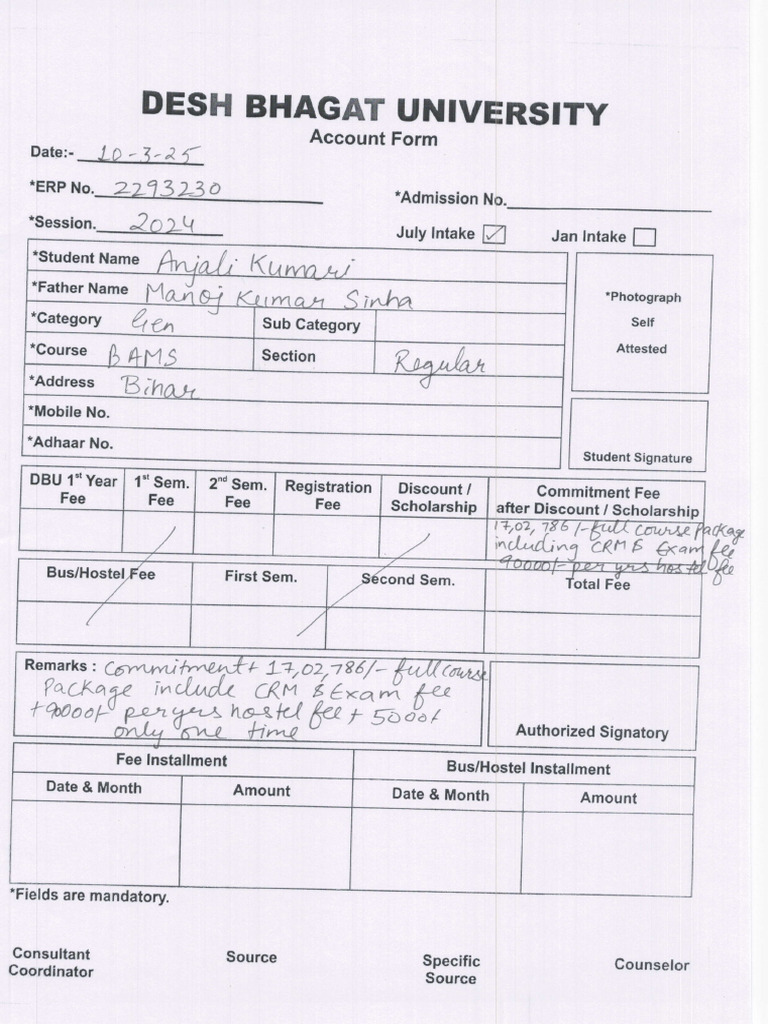 DESH BHAGAT UNIVERSITY
Account Form
Date:- 10-3-25
*ERP No. 2293230
*Admission No.
*Session. 2024
July Intake ✓
Jan Intake
*Student Name Anjali Kumari
*Father Name Manoj Kumar Sinha
*Category Gen Sub Category
*Course BAMS Section Regular
*Address Bihar
*Mobile No.
*Adhaar No.
*Photograph
Self
Attested
Student Signature
DBU 1st Year Fee
1st Sem. Fee
2nd Sem. Fee
Registration Fee
Discount / Scholarship
Commitment Fee
after Discount / Scholarship
17,02,786/- full course Package
including CRM & Exam fee
90000/- per yrs hostel fee
Bus/Hostel Fee First Sem. Second Sem. Total Fee
Remarks : Commitment + 17,02,786/- full course
Package include CRM & Exam fee
+90000/- per yrs hostel fee + 5000/-
only one time
Authorized Signatory
Fee Installment Bus/Hostel Installment
Date & Month Amount Date & Month Amount
*Fields are mandatory.
Consultant
Coordinator
Source
Specific
Source
Counselor